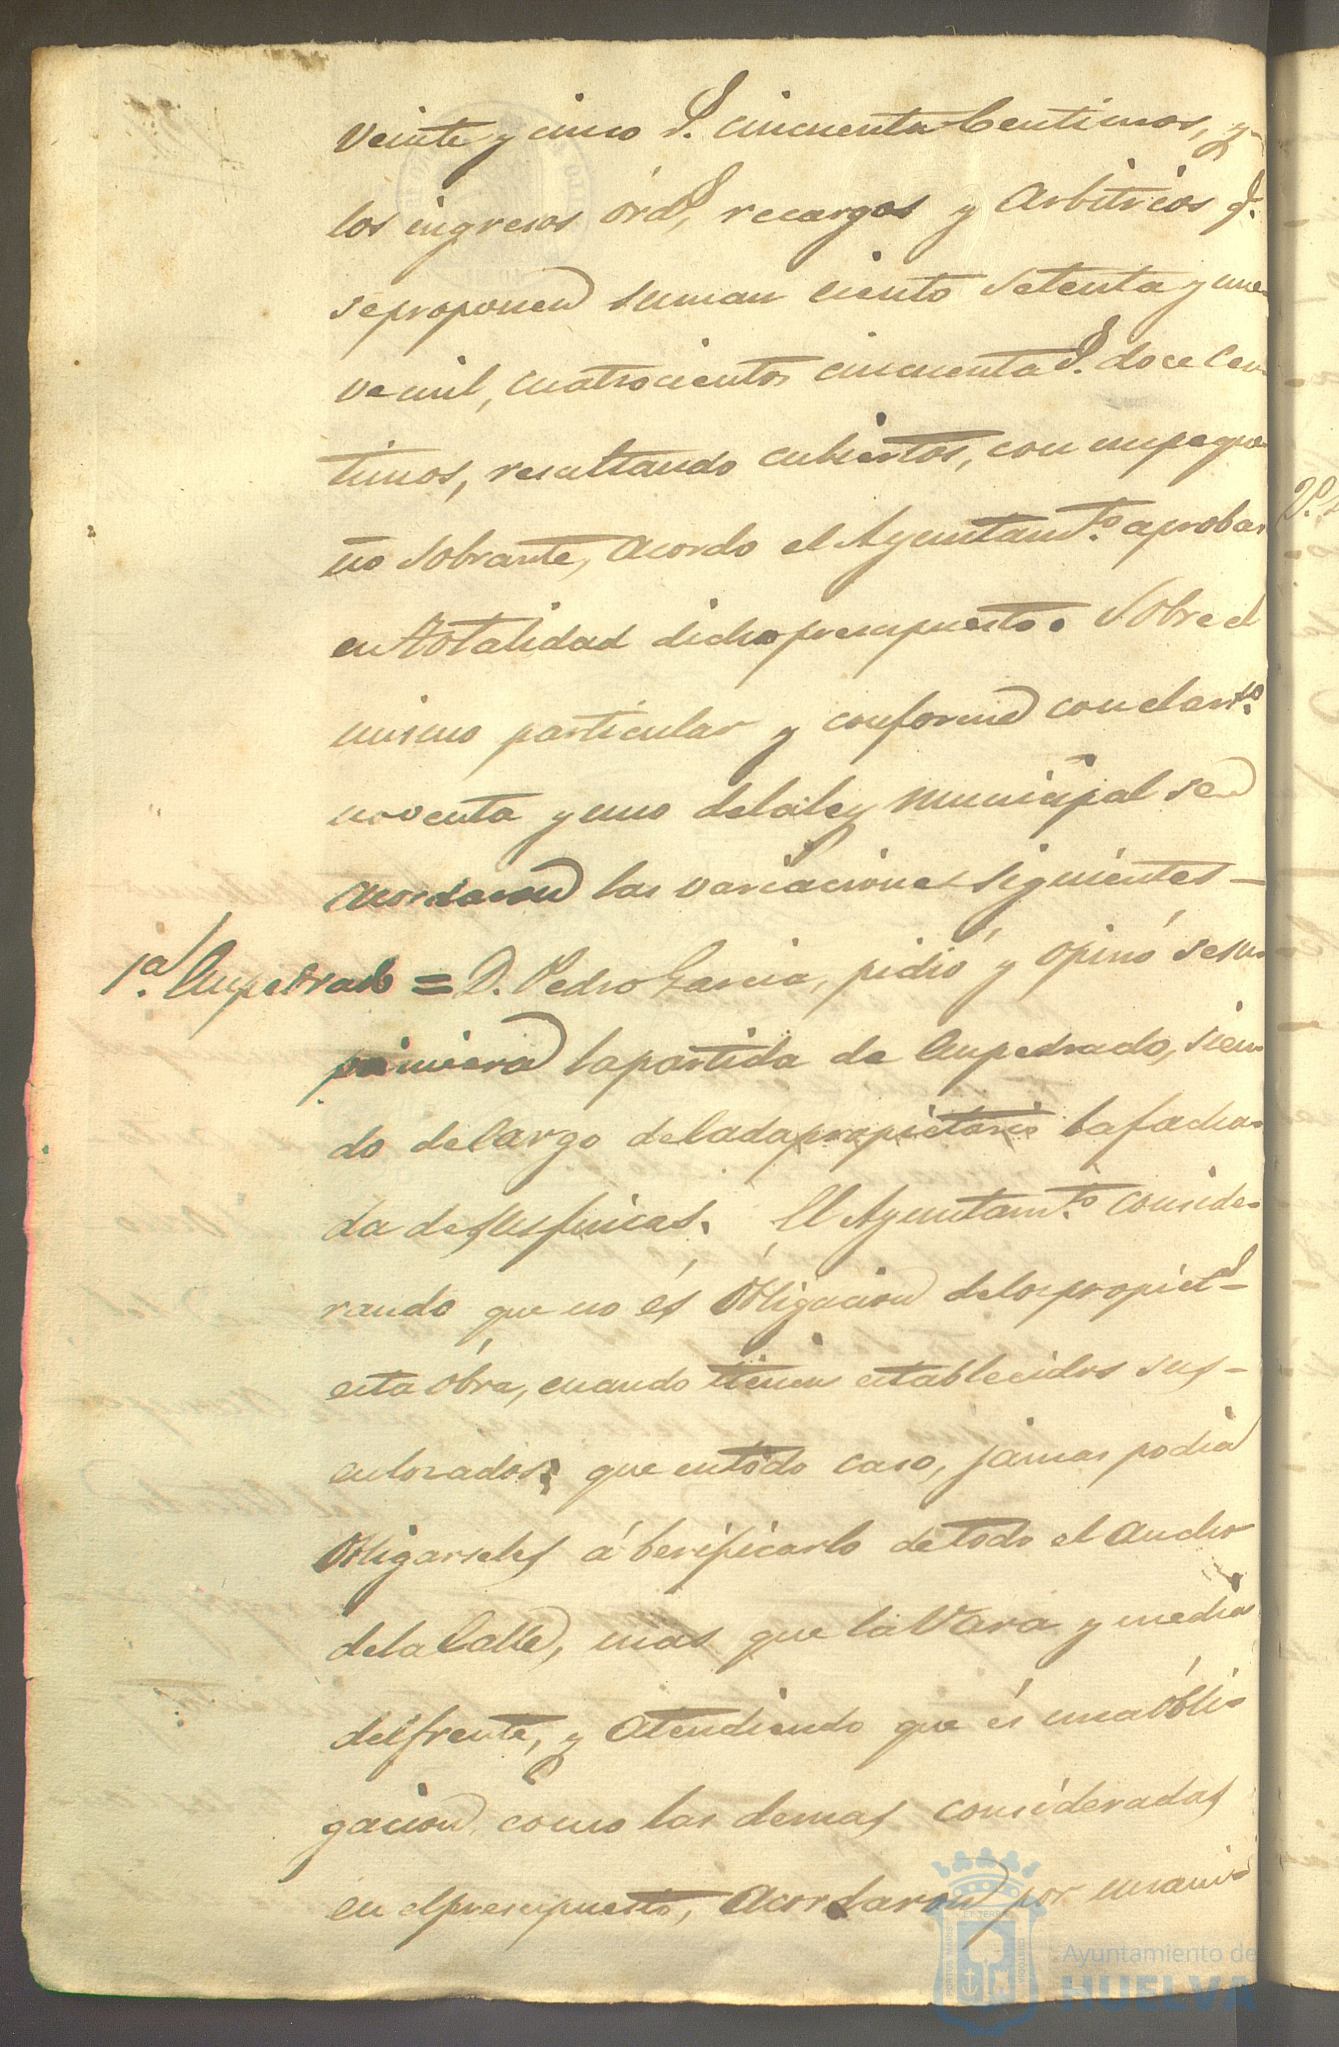 veinte y cinco P. cincuenta Centimos, y
los ingresos órdˢ, recargos y Arbitrios q.
se proponen suman ciento Setenta y nue-
ve mil, cuatrocientos cincuenta P. doce Cen-
timos, resultando cubiertos, con un peque-
ño Sobrante, Acordo el Ayuntamᵗᵒ. aprobar
en totalidad dicho presupuesto. Sobre el
mismo particular y conforme con el artᵒ.
noventa y uno de la ley Municipal se
Acordaron las variaciones siguientes—
1ª. Empedrado = D. Pedro Garcia, pidió y opinó se su-
primiera la partida de Empedrado, sien-
do de Cargo de Cada propietario la facha-
da de sus fincas. El Ayuntamᵗᵒ. conside-
rando que no és Obligacion de los propietˢ—
esta óbra, cuando tienen establecidos sus—
enlozados; que en todo caso, jamas podia
Obligarseles á berificarlo de todo el Ancho
de la Calle, mas que la Vara y media
del frente, y Atendiendo que és una óbli-
gacion como las demas consideradas
en el presupuesto, Acordaron por unani-
2ª.
Ayuntamiento de
HUELVA